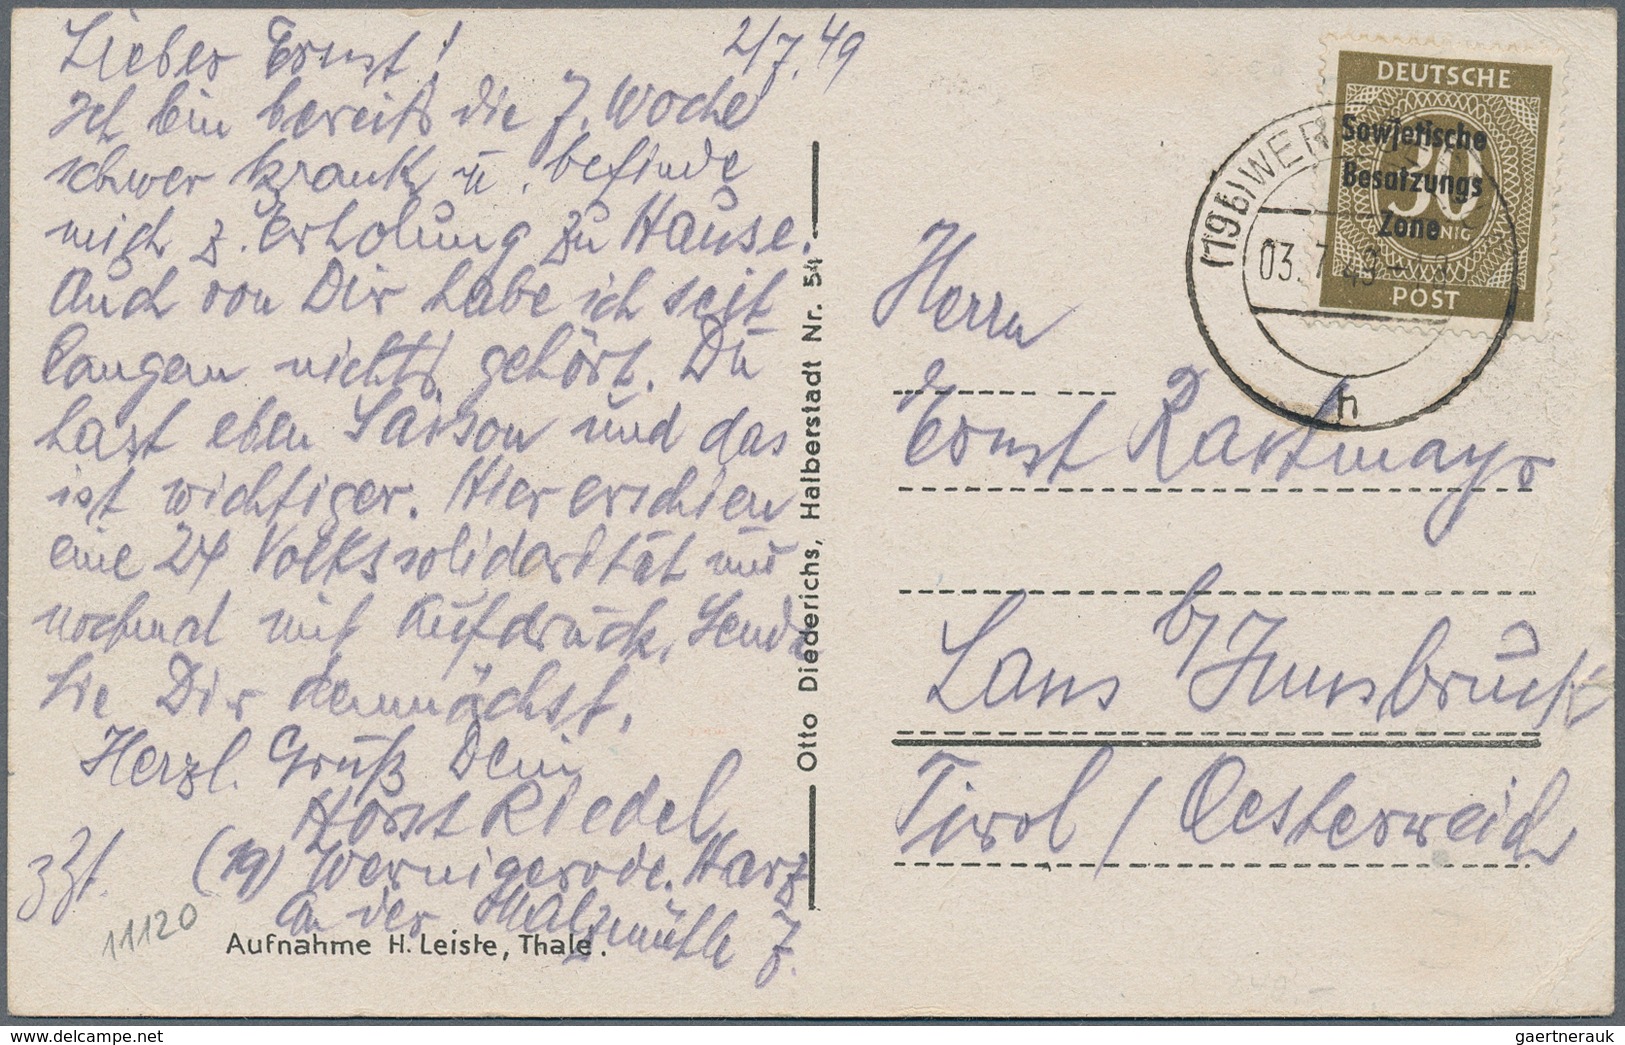 Lieber Ernst! 2/7.49
Ich bin bereits die 7. Woche
schwer krank u. befinde
mich z. Erholung zu Hause.
Auch von Dir habe ich seit
langem nichts gehört. Du
hast eben Saison und das
ist wichtiger. Hier erschien
eine 24 Volkssolidarität
nochmal mit Aufdruck. Sende
sie Dir demnächst.
Herzl. Gruß Dein
Horst Riedel
zZt. (19) Wernigerode. Harz
An der Malzmühle 7.
11120
Aufnahme H. Leiste, Thale.
Otto Diederichs, Halberstadt Nr. 54
DEUTSCHE
Sowjetische
Besatzungs
Zone
30
POST
(19b) WER
03.7.49-18
h
Herrn
Ernst Rastmayr
Lans b/Innsbruck
Tirol / Oesterreich
gaertnerauk @ www.delcampe.net